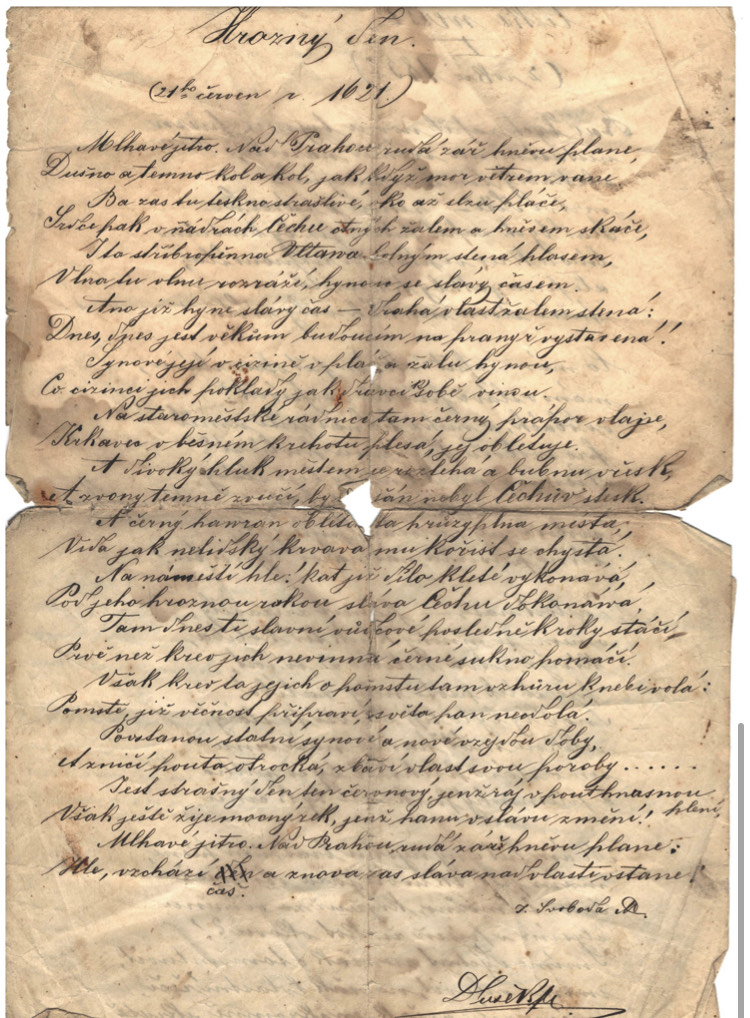 Hrozný den.
(21ho červen r. 1621.)
Mlhavé jitro. Nad Prahou rudá zář hněvu plane,
Dušno a temno kol a kol, jak když mor větrem vane
Ba zas tu teskno strastlivé, oko až slzu pláče,
Srdce pak v ňádrách Čechu ctných žalem a hněvem skáče,
I ta stříbropěnna Vltawa bolným stená hlasem,
Vlna tu vlnu rozráží, hynou se slávy časem.
Ano již hyne slávy čas – drahá vlast žalem stena:
Dnes, dnes jest věkům budoucím na pranýř vystavena!
Synové její v cizině v pláč a žalu hynou,
Co cizinci jich poklady jak dravci sobě vinou.
Na staroměstské rádnici tam černý prápor vlaje,
Krkavec v běsném krehotu plesá, jej obletuje.
A divoký hluk městem se rozleha a bubnu vřesk,
A zvony temně zvučí, by nebyl Čechův stesk.
A černý hawran obléta ta hrůzyplna mesta,
Vida jak nelidský krvava mu kořist se chystá.
Na náměstí hle! kat již dílo kleté vykonává,
Pod jeho hroznou rukou sláva Čechu dokonáwa,
Tam dnes ti slavní vůdcové posledně kroky stáčí,
Prvé než krev jich nevinná černé sukno pomáčí.
Však krev ta jejich o pomstu tam vzhůru k nebi volá:
Pomste, již věčnost připraví, světa pan neodolá.
Povstanou statní synové a nové vzejdou doby,
A zničí pouta otrocká, zbaví vlast svou poroby . . . . . .
Jest strašný den ten červnový, jenž ráj v poušt hnasnou
plení,
Však ještě žije mocný rek, jenž hanu v slávu změní!
Mlhavé jitro. Nad Prahou rudá zář hněvu plane:
Hle, vzchází a znova zas sláva nad vlastí vstane!
čas.
J. Svoboda